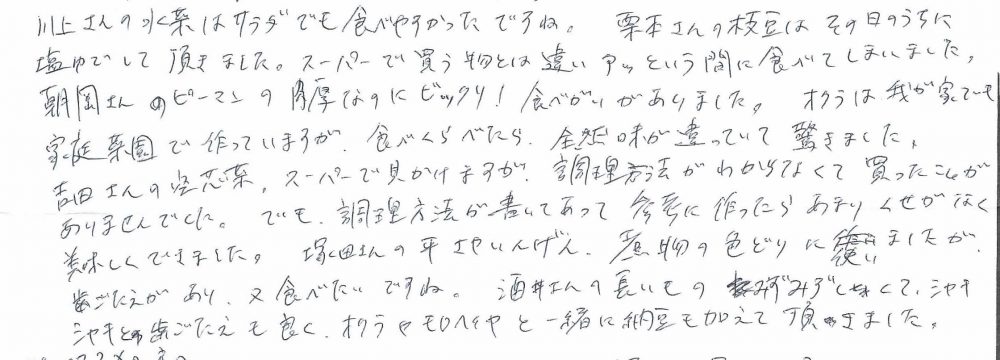 川上さんの水菜はサラダでも食べやすかったですね。 栗本さんの枝豆はその日のうちに
塩ゆでして頂きました。スーパーで買う物とは違いアッという間に食べてしまいました。
朝岡さんのピーマンの肉厚なのにビックリ! 食べがいがありました。 オクラは我が家でも
家庭菜園で作っていますが、食べくらべたら、全然味が違っていて驚きました。
吉田さんの空芯菜、スーパーで見かけますが、調理方法がわからなくて買ったことが
ありませんでした。 でも、調理方法が書いてあって参考に作ったらあまりくせがなく
美味しくできました。 塚田さんの平さやいんげん、煮物の色どりに使いましたが、
歯ごたえがあり、又食べたいですね。 酒井さんの長いもの みずみずしくて、シャキ
シャキと歯ごたえも良く、オクラやモロヘイヤと一緒に納豆も加えて頂きました。